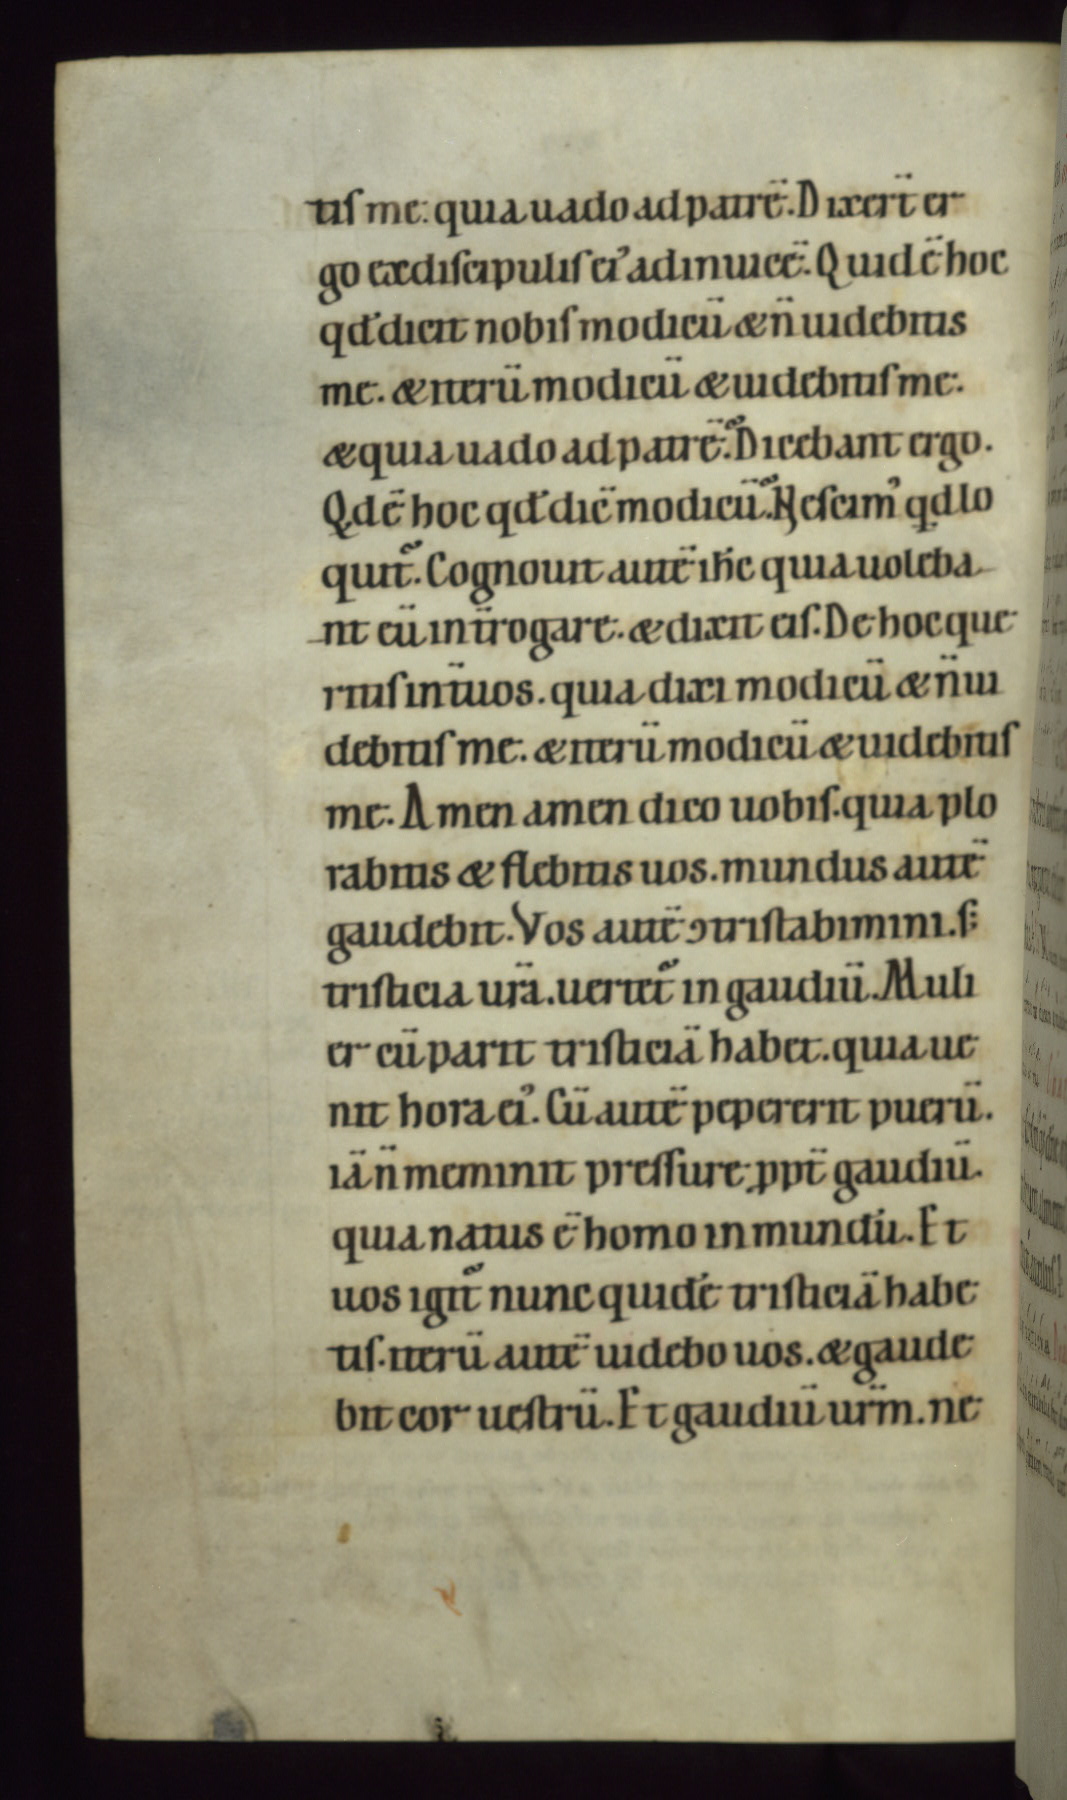 tis me. quia uado ad patrē. Dixerūt er
go ex discipulis ei᾽ ad inuicē. Quid ē hoc
qđ dicit nobis modicū & n̄ uidebitis
me. & iterū modicū & uidebitis me.
& quia uado ad patrē. Dicebant ergo.
Qd ē hoc qđ dic̄ modicū. Nescim᾽ qd lo
quit̄. Cognouit autē ih̄c quia uoleba
nt eū int̄rogare. & dixit eis. De hoc que
ritis int̄ uos. quia dixi modicū & n̄ ui
debitis me. & iterū modicū & uidebitis
me. Amen amen dico uobis. quia plo
rabitis & flebitis uos. mundus autē
gaudebit. Vos autē ɔtristabimini. s;
tristicia ur̄a. uertet̄ in gaudiū. Muli
er cū parit tristiciā habet. quia ue
nit hora ei᾽. Cū autē pepererit puerū.
iā n̄ meminit pressure ꝓpt̄ gaudiū.
quia natus ē homo in mundū. Et
uos igit̄ nunc quidē tristiciā habe
tis. iterū autē uidebo uos. & gaude
bit cor uestrū. Et gaudiū ur̄m. ne